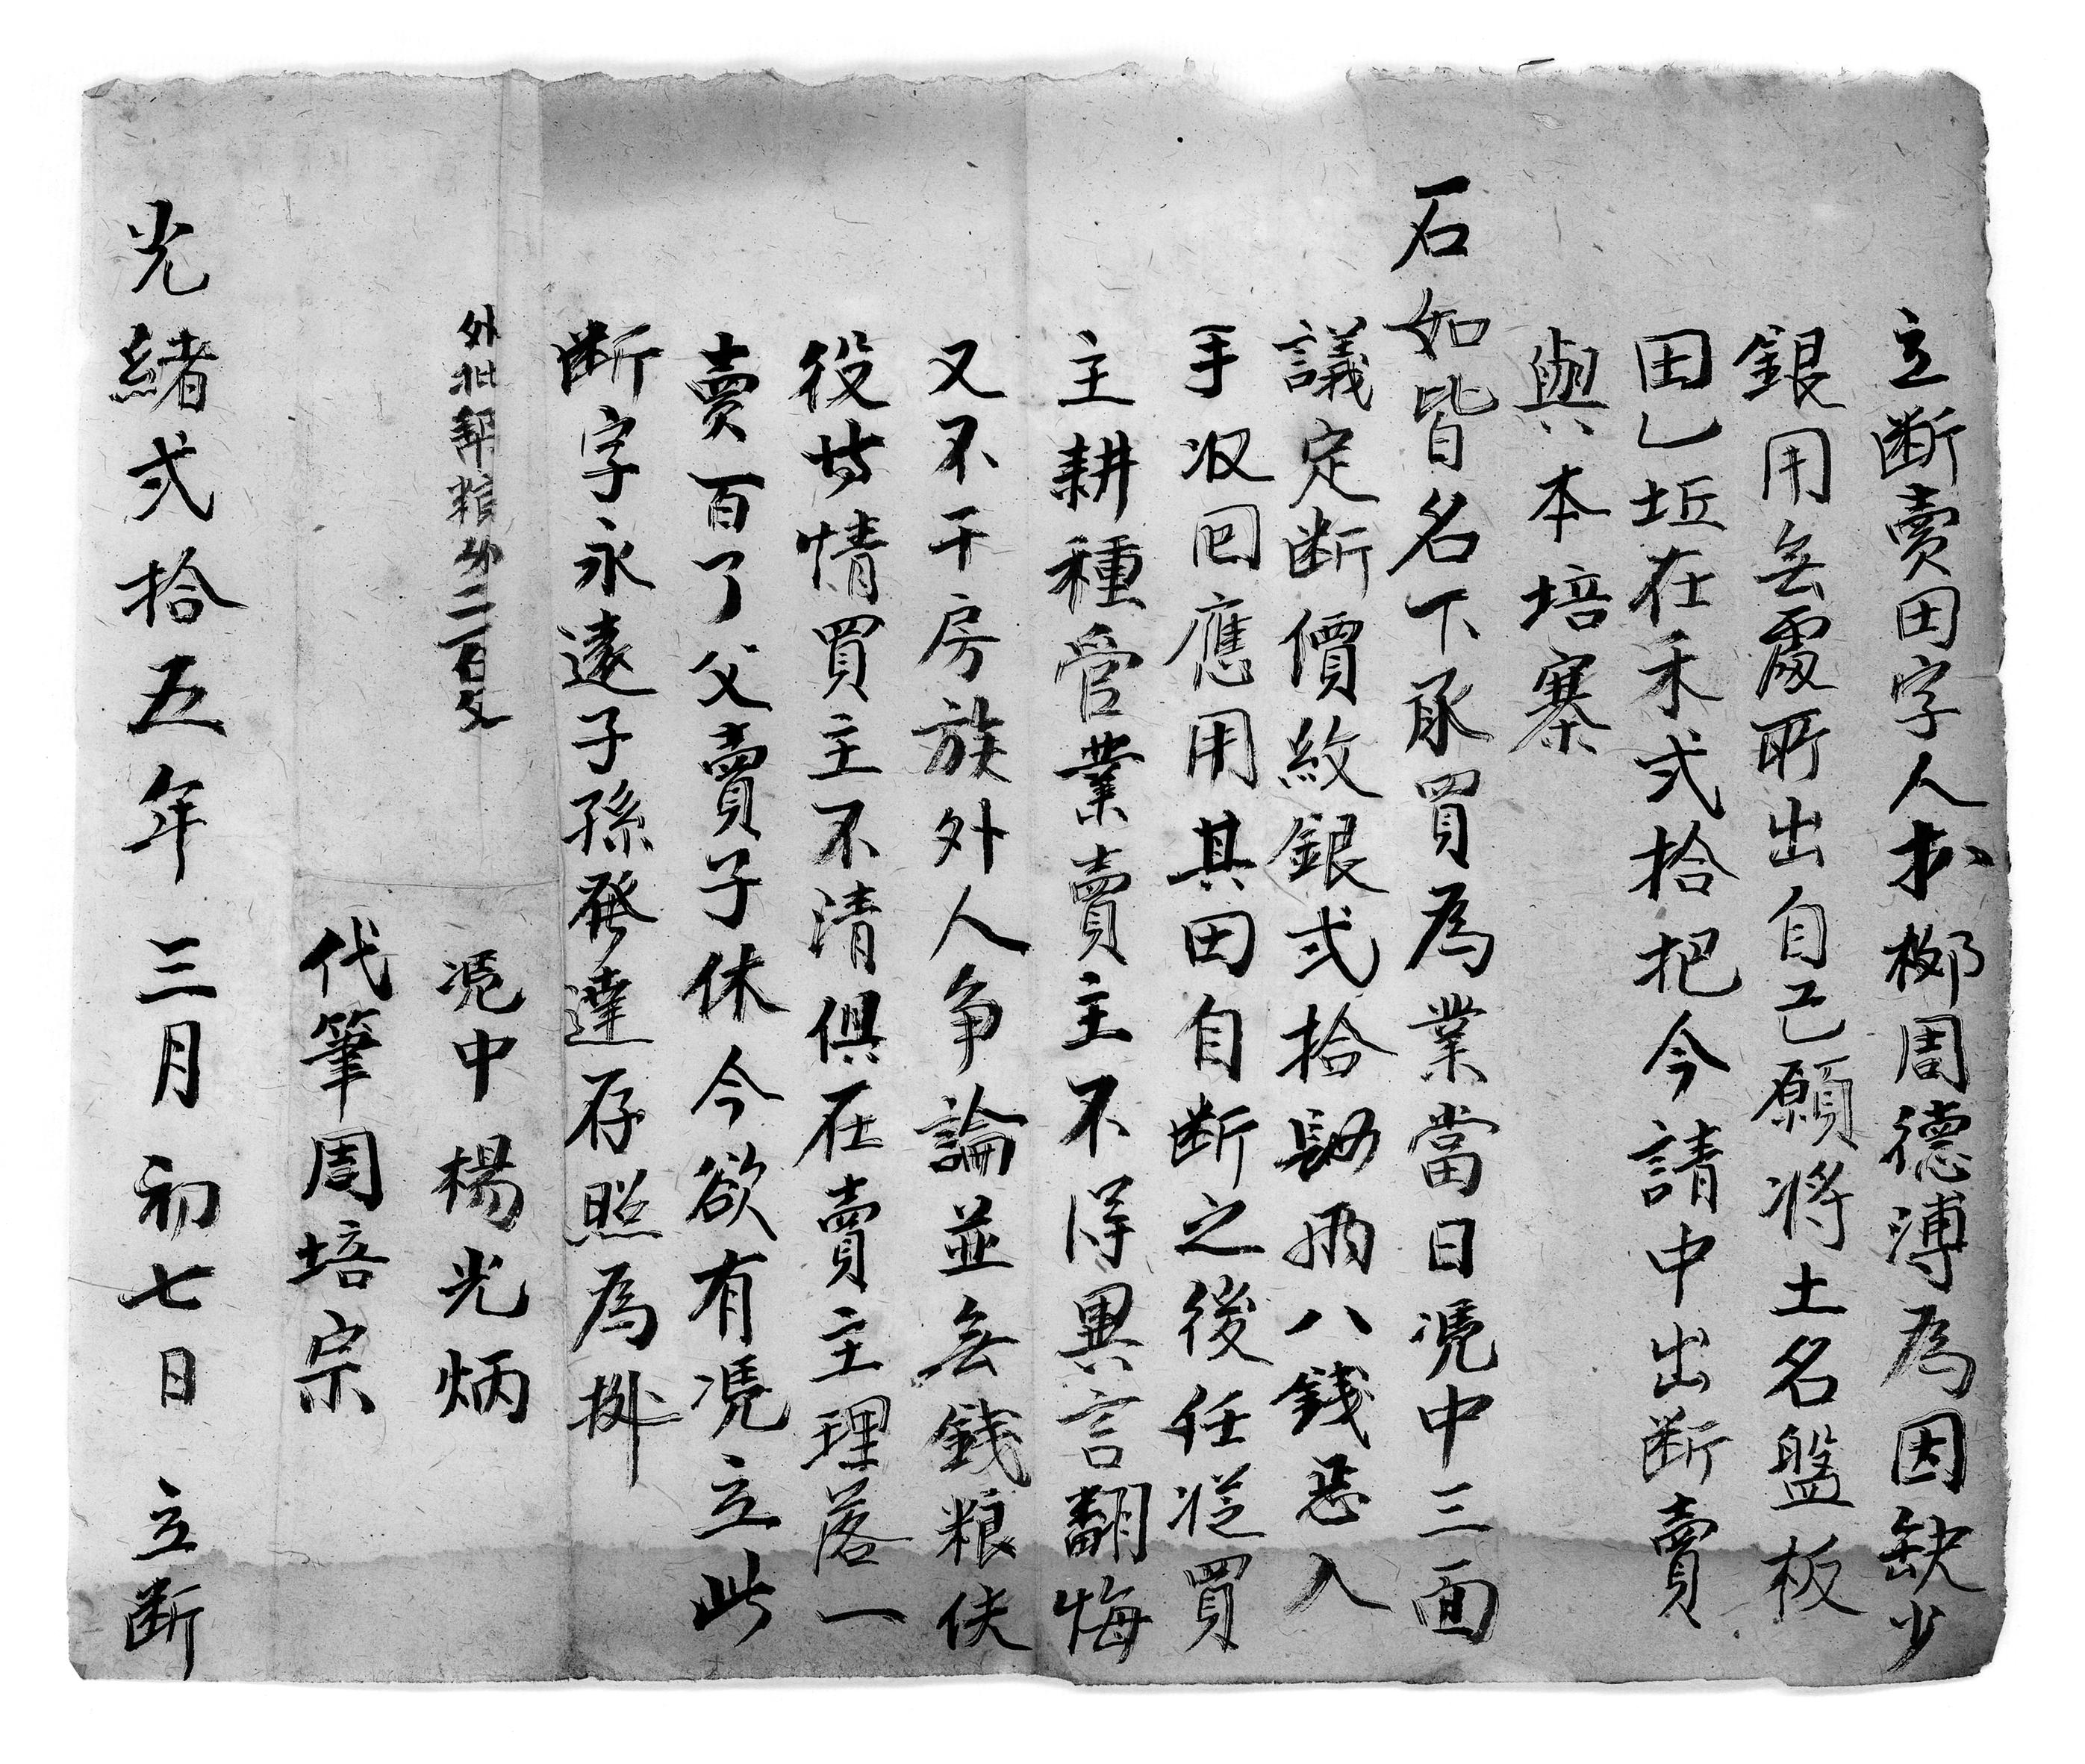 立断賣田字人朩梛周德溥為因缺少
銀用无處所出自己願将土名盤板
田乚坵在禾弍拾把今請中出断賣
與本培寨
石如皆名下承買為業當日凴中三面
議定断價紋銀弍拾肆両八錢㤙入
手収囬應用其田自断之後任従買
主耕種管業賣主不淂異言翻悔
又不干房族外人争論並无錢粮伕
役等情買主不清俱在賣主理落一
賣百了父賣子休今欲有凴立此
断字永遠子孫發達存照為㨿
外批幇粮分二百文
凴中楊光炳
代筆周培宗
光緒弍拾五年三月初七日 立断